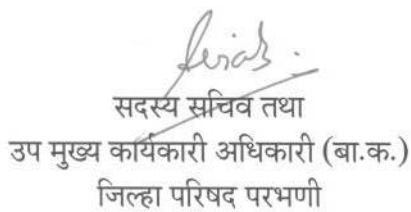 सदस्य सचिव तथा
उप मुख्य कार्यकारी अधिकारी (बा.क.)
जिल्हा परिषद परभणी